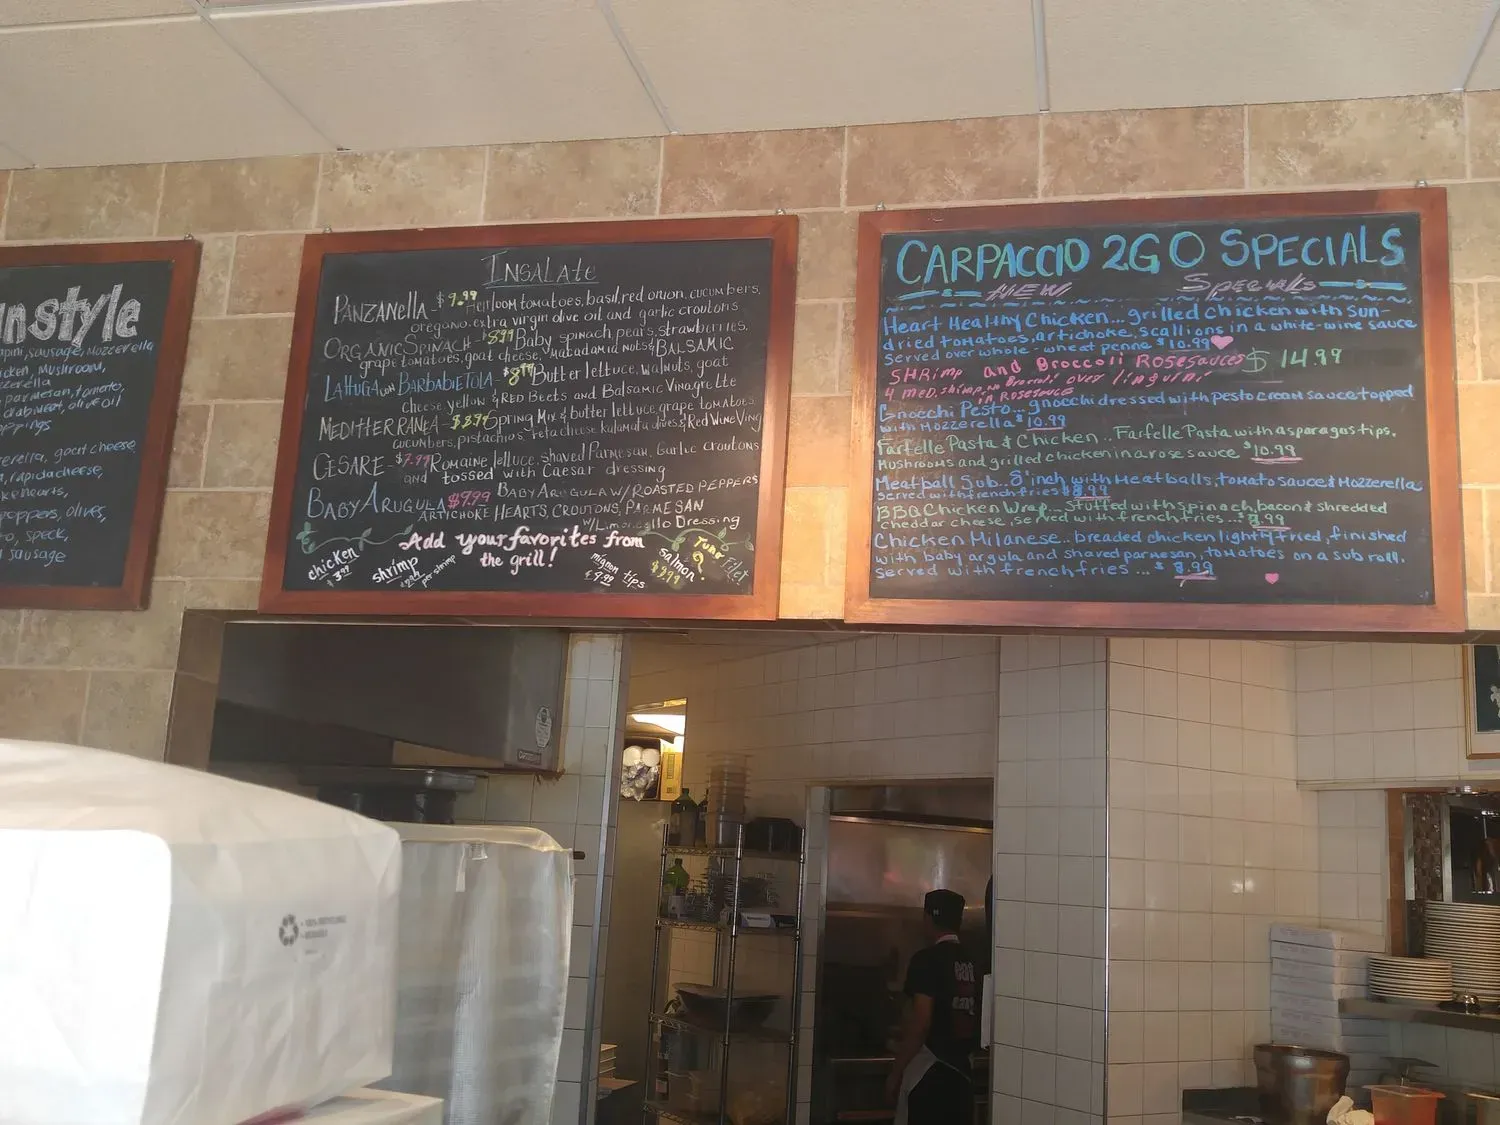 n style
apini, sausage, Mozzerella
cken, Mushroom,
zzerella
parmesan, tomato,
crabmeat, olive oil
ppings
erella, goat cheese
, rapida cheese,
ke hearts,
peppers, olives,
to, speck,
d sausage
INSALATE
PANZANELLA - $9.99 Heirloom tomatoes, basil, red onion, cucumbers,
oregano, extra virgin olive oil and garlic croutons
ORGANIC SPINACH - $8.99 Baby spinach, pears, strawberries,
grape tomatoes, goat cheese, macadamia nots & BALSAMIC
LATTUGA CON BARBABIETOLA - Butter lettuce, walnuts, goat
cheese, yellow & RED Beets and Balsamic Vinagrette
MEDITERRANEA - Spring Mix & butter lettuce, grape tomatoes,
cucumbers, pistachios, feta cheese, kalamata olives & Red Wine Ving
CESARE - $7.99 Romaine lettuce, shaved Parmesan, Garlic croutons
and tossed with Caesar dressing
BABY ARUGULA $9.99 BABY ARUGULA W/ ROASTED PEPPERS
ARTICHOKE HEARTS, CROUTONS, PARMESAN
W/Limoncello Dressing
Add your favorites from
the grill!
chicken
3.99
shrimp
per shrimp
mignon tips
$9.99
salmon
$9.99
Tuna Filet
CARPACCIO 2GO SPECIALS
NEW Specials
Heart Healthy Chicken... grilled Chicken with sun-
dried tomatoes, artichoke, scallions in a white-wine sauce
served over whole-wheat penne $10.99
SHRimp and Broccoli Rosesauces $14.99
4 med. shrimp, Broccoli over linguini
in Rosesauce
Gnocchi Pesto... gnocchi dressed with pesto cream sauce topped
with Mozzerella $10.99
Farfelle Pasta & Chicken... Farfelle Pasta with asparagus tips,
Mushrooms and grilled chicken in a rose sauce $10.99
Meatball Sub.. 8 inch with Meatballs, tomato sauce & Mozzerella
served with french fries $8.99
BBQ Chicken Wrap... stuffed with spinach, bacon & shredded
cheddar cheese, served with french fries... 8.99
Chicken Milanese.. breaded chicken lightly fried, finished
with baby argula and shaved parmesan, tomatoes on a sub roll.
served with french fries ... $8.99
eat